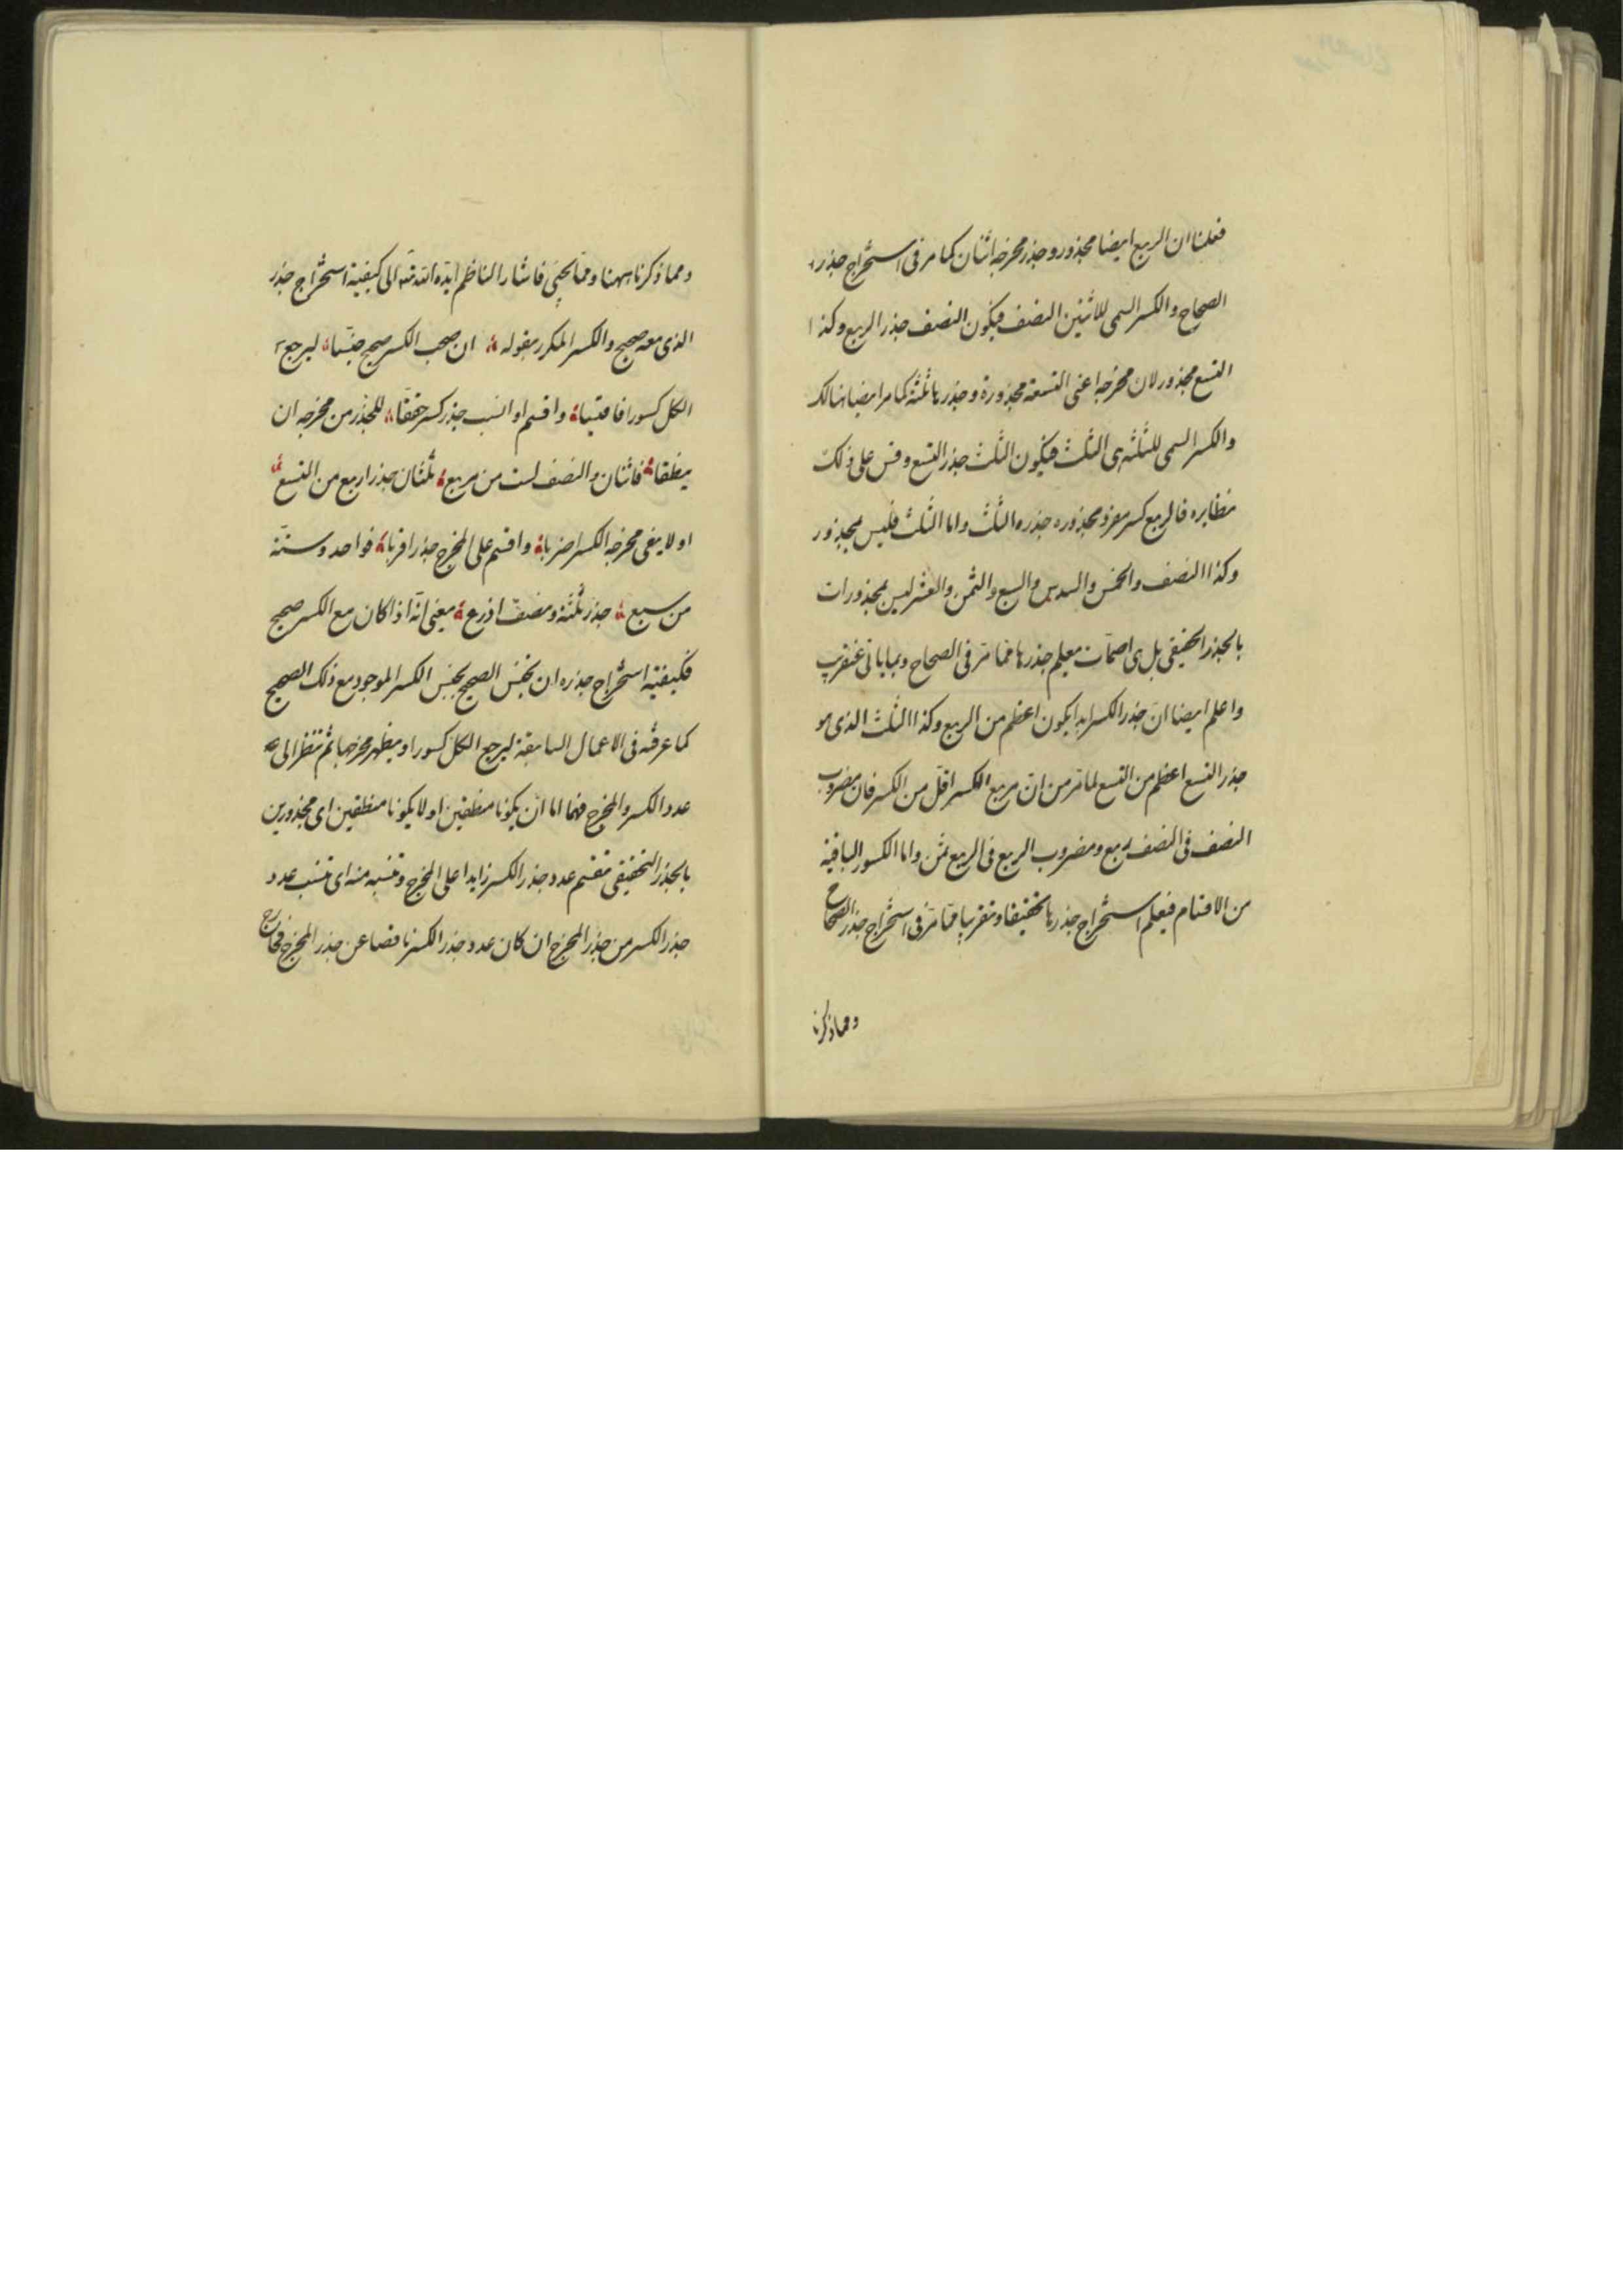 فعلمنا ان الربع ايضا مجذور وجذر مخرجه اثنان كما مر فى استخراج جذر
الصحاح والكسر السمى للاثنين النصف فيكون النصف جذر الربع وكذا
التسع مجذور لان مخرجه اعنى التسعة مجذورة وجذرها ثلثة كما مر ايضا هنالك
والكسر السمى للثلثة هى الثلث فيكون الثلث جذر التسع وقس على ذلك
نظايره فالربع كسر مفرد مجذوره جذره الثلث واما الثلث فليس بمجذور
وكذا النصف والخمس والسدس والسبع والثمن والعشر ليس بمجذورات
بالجذر الحقيقى بل هى اصمات معيلم جذرها مما مر فى الصحاح وبما ياتى عنقريب
واعلم ايضا ان جذر الكسر ابدا يكون اعظم من الربع وكذا الثلث الذى هو
جذر التسع اعظم من التسع لما مر من ان مربع الكسر اقل من الكسر فان مضروب
النصف فى النصف ربع ومضروب الربع فى الربع ثمن واما الكسور الباقية
من الاقسام فيعلم استخراج جذرها تحقيقا وتقريبا مما مر فى استخراج جذر الصحاح
ومما ذكرنا
ومما ذكرنا ههنا ومما يجيئ فاشار الناظم ايده الله تعه الى كيفية استخراج جذر
الذى معه صحيح والكسر المكرر بقوله ان صحب الكسر صحيح جنسا ليرجع
الكل كسورا فاقتبسا واقسم او انسب جذر كسر حققا للجذر من مخرجه ان
ينطقا فاثنان والنصف لست من ربع ثلثان جذر اربع من التسع
او لا يفى مخرجه الكسر اضربا واقسم على المخرج جذرا قربا فواحد وستة
من سبع جذر ثلثة ونصف اذرع يعنى انه اذا كان مع الكسر صحيح
فكيفية استخراج جذره ان تجنس الصحيح بجنس الكسر الموجود مع ذلك الصحيح
كما عرفته فى الاعمال السابقة ليرجع الكل كسورا ويظهر مخرجها ثم تنظر الى
عدد الكسر والمخرج فهما اما ان يكونا منطقين او لا يكونا منطقين اى مجذورين
بالجذر التحقيقى فنقسم عدد جذر الكسر زايدا على المخرج وننسبه منه اى ننسب عدد
جذر الكسر من جذر المخرج ان كان عدد جذر الكسر ناقصا عن جذر المخرج فخارج